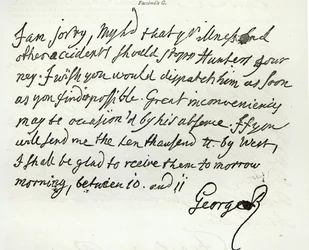 Facsimile G.
I am sorry, My Ld that yr illness and
other accidents should stopp Hunters Jour
ney. I wish you would dispatch him as soon
as you find possible. Great inconveniencies
may be occasion'd by his absence. If you
will send me the ten thousend tt. by West,
I shall be glad to receive them to morrow
morning, between 10. and 11
George R